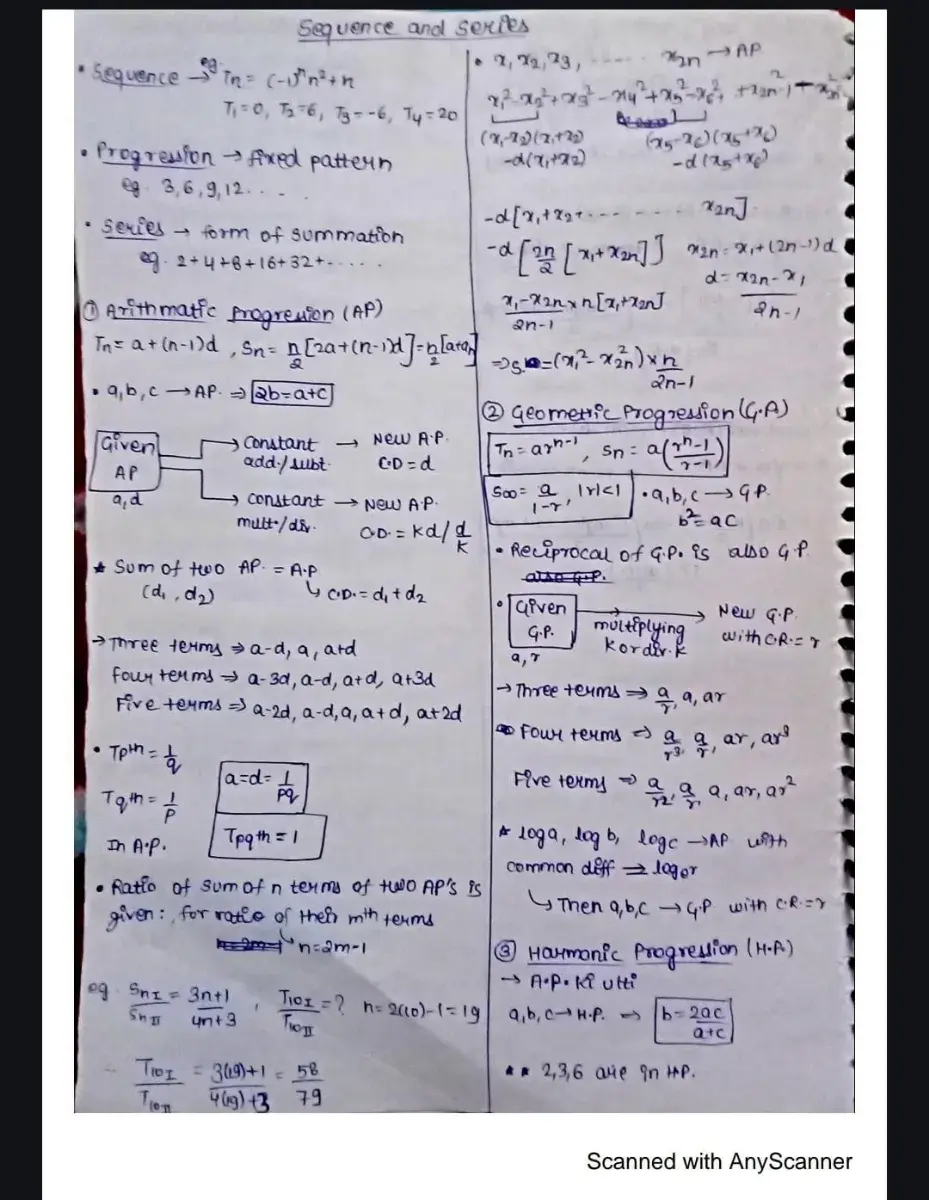 Sequence and Series
• Sequence → eg. Tn = (-1)ⁿn²+n
T1=0, T2=6, T3=-6, T4=20
• Progression → fixed pattern
eg. 3,6,9,12....
• Series → form of summation
eg. 2+4+8+16+32+.....
① Arithmatic progression (AP)
Tn = a+(n-1)d , Sn = n/2 [2a+(n-1)d] = n/2 [a+an]
• a,b,c → AP. ⇒ 2b=a+c
Given AP
a,d
→ constant add./subt. → New A.P. C.D=d
→ constant mult./div. → New A.P. C.D. = kd/ d/k
* Sum of two AP. = A.P
(d1, d2) ↳ C.D.= d1+d2
→ Three terms ⇒ a-d, a, a+d
four terms ⇒ a-3d, a-d, a+d, a+3d
Five terms ⇒ a-2d, a-d, a, a+d, a+2d
• Tpth = 1/q
a=d= 1/pq
Tqth = 1/p
Tpqth = 1
In A.P.
• Ratio of sum of n terms of two AP's is
given: for ratio of their mth terms
↳ n=2m-1
eg. SnI/SnII = 3n+1/4n+3 , T10I/T10II = ? n= 2(10)-1=19
T10I/T10II = 3(19)+1/4(19)+3 = 58/79
• x1, x2, x3, ...... x2n → AP
x1²-x2²+x3²-x4²+x5²-x6², +x2n-1²-x2n²
(x1-x2)(x1+x2) (x5-x6)(x5+x6)
-d(x1+x2) -d(x5+x6)
-d[x1+x2+.... ..... x2n]
-d[2n/2 [x1+x2n]] x2n = x1+(2n-1)d
d= x2n-x1/2n-1
x1-x2n/2n-1 × n[x1+x2n]
⇒ S = (x1²-x2n²) × n/2n-1
② Geometric Progression (G.A)
Tn = arⁿ⁻¹ , Sn = a(rⁿ-1/r-1)
S∞ = a/1-r , |r|<1 • a,b,c → G.P.
b²=ac
• Reciprocal of G.P. is also G.P.
• Given G.P. → multiplying k or div. k → New G.P. with C.R.= r
a, r
→ Three terms ⇒ a/r, a, ar
Four terms ⇒ a/r³, a/r, ar, ar³
Five terms ⇒ a/r², a/r, a, ar, ar²
* log a, log b, log c → AP with
common diff ⇒ log r
↳ Then a,b,c → G.P with C.R.=r
③ Harmonic Progression (H.A)
→ A.P. ki ulti
a,b,c → H.P. ⇒ b= 2ac/a+c
** 2,3,6 are in HP.
Scanned with AnyScanner